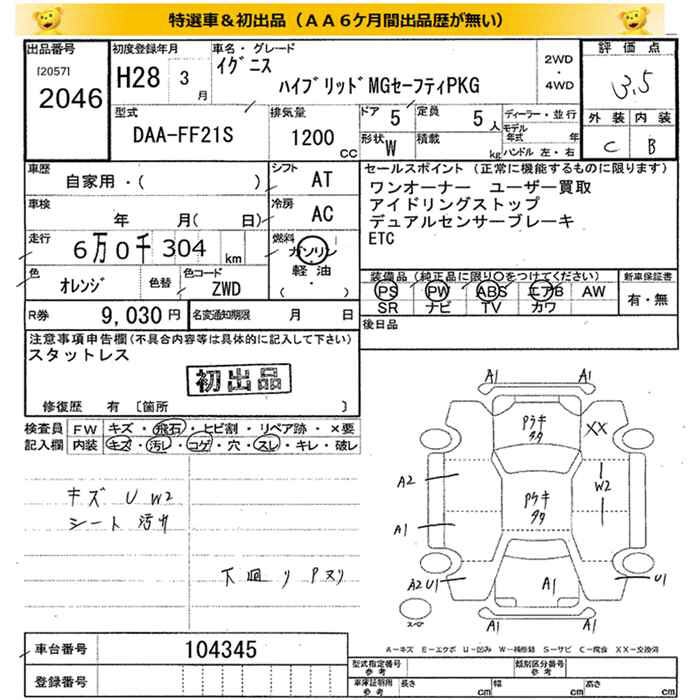 特選車＆初出品（ＡＡ６ケ月間出品歴が無い）
出品番号
[2057]
2046
初度登録年月
H28 3 月
車名・グレード
イグニス
ハイブリッドMGセーフティPKG
2WD
・
4WD
評価点
3.5
外装 内装
C B
型式
DAA-FF21S
排気量
1200 CC
ドア 5
定員 5 人
形状 W
積載 kg
ディーラー・並行
モデル年式 年
ハンドル 左・右
車歴
自家用・( )
シフト AT
車検
年 月( 日)
冷房 AC
走行
6万0千304 km
燃料
ガソリン
軽油
( ・ )
色
オレンジ
色替
色コード
ZWD
R券 9,030 円
名変通知期限 月 日
セールスポイント(正常に機能するものに限ります)
ワンオーナー ユーザー買取
アイドリングストップ
デュアルセンサーブレーキ
ETC
装備品(純正品に限り○をつけてください)
新車保証書
PS PW ABS エアB AW
有・無
SR ナビ TV カワ
後日品
注意事項申告欄(不具合内容等は具体的に記入して下さい)
スタットレス
初出品
修復歴 有 〔箇所 〕
検査員記入欄
FW キズ・飛石・ヒビ割・リペア跡・×要
内装 キズ・汚レ・コゲ・穴・スレ・キレ・破レ
キズ U W2
シート 汚れ
下廻り Pヌリ
A1 A1
Pウキ
タタ
XX
A2
W2
Pウキ
タタ
A1
A2 U1
A1
U1
A1 A1
A-キズ E-エクボ U-凹み W-補修跡 S-サビ C-腐食 XX-交換済
車台番号 104345
登録番号
型式指定番号
参考
類別区分番号
参考
車庫証明用
参考
長さ cm 幅 cm 高さ cm